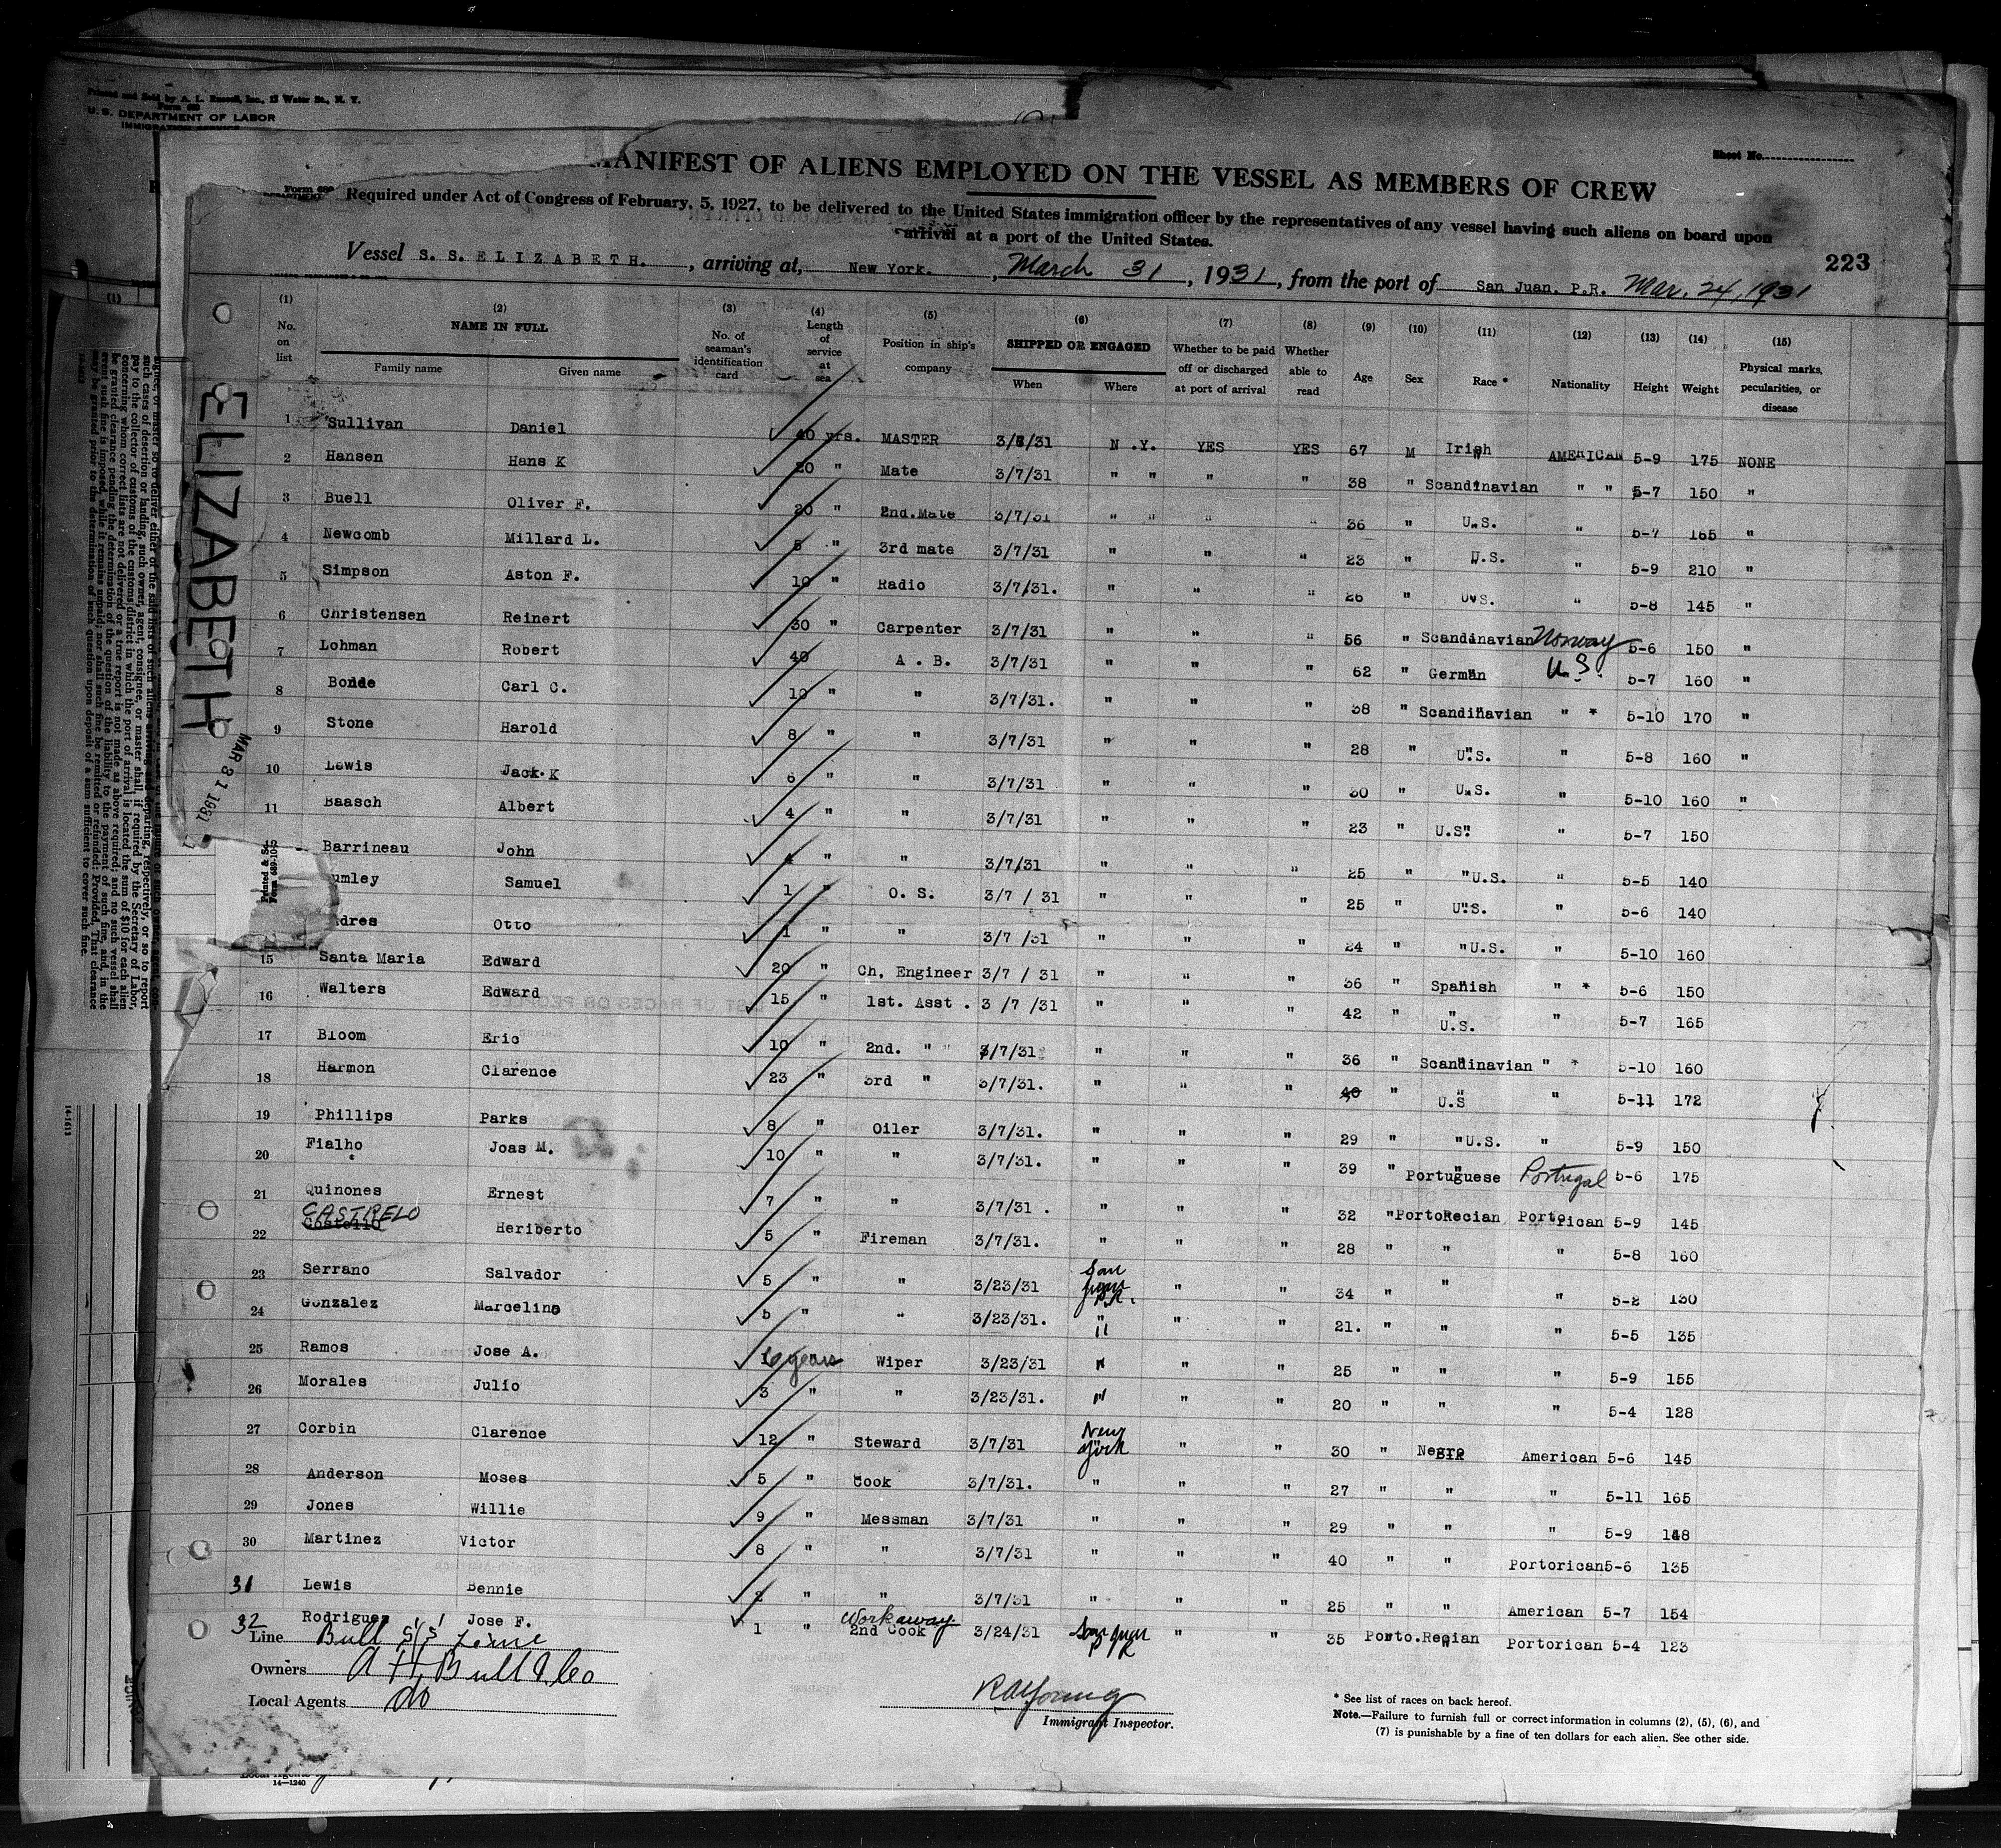 Printed and Sold by A. L. Russell, Inc., 13 Water St., N. Y.
Form 689
U. S. DEPARTMENT OF LABOR
IMMIGRATION SERVICE
Sheet No.
MANIFEST OF ALIENS EMPLOYED ON THE VESSEL AS MEMBERS OF CREW
Form 689
DEPARTMENT
Required under Act of Congress of February, 5, 1927, to be delivered to the United States immigration officer by the representatives of any vessel having such aliens on board upon
arrival at a port of the United States.
223
Vessel S. S. ELIZABETH. , arriving at, New York. , March 31 , 1931 , from the port of San Juan, P.R. Mar. 24, 1931
(1) (2) (3) (4) (5) (6) (7) (8) (9) (10) (11) (12) (13) (14) (15)
No. on list NAME IN FULL Family name Given name No. of seaman's identification card Length of service at sea Position in ship's company SHIPPED OR ENGAGED When Where Whether to be paid off or discharged at port of arrival Whether able to read Age Sex Race * Nationality Height Weight Physical marks, pecularities, or disease
1 Sullivan Daniel 40 yrs. MASTER 3/6/31 N .Y. YES YES 67 M Irish AMERICAN 5-9 175 NONE
2 Hansen Hans K 20 " Mate 3/7/31 " " " " 38 " Scandinavian " " 5-7 150 "
3 Buell Oliver F. 20 " 2nd.Mate 3/7/31 " " " " 36 " U.S. " 5-7 165 "
4 Newcomb Millard L. 5 " 3rd mate 3/7/31 " " " 23 " U.S. " 5-9 210 "
5 Simpson Aston F. 10 " Radio 3/7/31. " " " 26 " U.S. " 5-8 145 "
6 Christensen Reinert 30 " Carpenter 3/7/31 " " " 56 " Scandinavian Norway 5-6 150 "
7 Lohman Robert 40 A . B. 3/7/31 " " " 62 " German U.S. 5-7 160 "
8 Bonde Carl C. 10 " " 3/7/31. " " " 38 " Scandinavian " * 5-10 170 "
9 Stone Harold 8 " " 3/7/31 " " " 28 " U.S. " 5-8 160 "
10 Lewis Jack.K 6 " " 3/7/31 " " " 30 " U.S. " 5-10 160 "
11 Baasch Albert 4 " " 3/7/31 " " " 23 " U.S. " 5-7 150
Barrineau John 4 " " 3/7/31 " " " 25 " "U.S. " 5-5 140
umley Samuel 1 " O. S. 3/7 / 31 " " " 25 " U.S. " 5-6 140
dres Otto 1 " " 3/7 /31 " " " 24 " "U.S. " 5-10 160
15 Santa Maria Edward 20 " Ch. Engineer 3/7 / 31 " " " 36 " Spanish " * 5-6 150
16 Walters Edward 15 " 1st. Asst . 3 /7 /31 " " " 42 " U.S. " 5-7 165
17 Bloom Eric 10 " 2nd. " " 3/7/31 " " " 36 " Scandinavian " * 5-10 160
18 Harmon Clarence 23 " 3rd " 3/7/31. " " " 40 " U.S " 5-11 172
19 Phillips Parks 8 " Oiler 3/7/31. " " " 29 " "U.S. " 5-9 150
20 Fialho Joas M. 10 " " 3/7/31. " " " 39 " Portuguese Portugal 5-6 175
21 Quinones Ernest 7 " " 3/7/31 . " " " 32 " PortoRecian Portorican 5-9 145
22 CASTRELO Heriberto 5 " Fireman 3/7/31. " " " 28 " " " 5-8 160
23 Serrano Salvador 5 " " 3/23/31 San Juan P.R. " " 34 " " 5-2 130
24 Gonzalez Marcelino 5 " " 3/23/31. " " " 21. " " " 5-5 135
25 Ramos Jose A. 6 years Wiper 3/23/31 " " " 25 " " " 5-9 155
26 Morales Julio 3 " " 3/23/31. " " " 20 " " " 5-4 128
27 Corbin Clarence 12 " Steward 3/7/31 New York " " 30 " Negro American 5-6 145
28 Anderson Moses 5 " Cook 3/7/31. " " " 27 " " " 5-11 165
29 Jones Willie 9 " Messman 3/7/31 " " " 29 " " " 5-9 148
30 Martinez Victor 8 " " 3/7/31 " " " 40 " " Portorican 5-6 135
31 Lewis Bennie 2 " " 3/7/31 " " " 25 " " American 5-7 154
32 Rodrigues Jose F. 1 " Workaway 2nd Cook 3/24/31 San Juan PR " " 35 Porto.Recian Portorican 5-4 123
Line Bull S/S Line
Owners A H Bull & Co
Local Agents do
R A Young
Immigrant Inspector.
* See list of races on back hereof.
Note.—Failure to furnish full or correct information in columns (2), (5), (6), and
(7) is punishable by a fine of ten dollars for each alien. See other side.
14—1240
ELIZABETH
MAR 31 1931
Printed & So
Form 689-10
14-1613